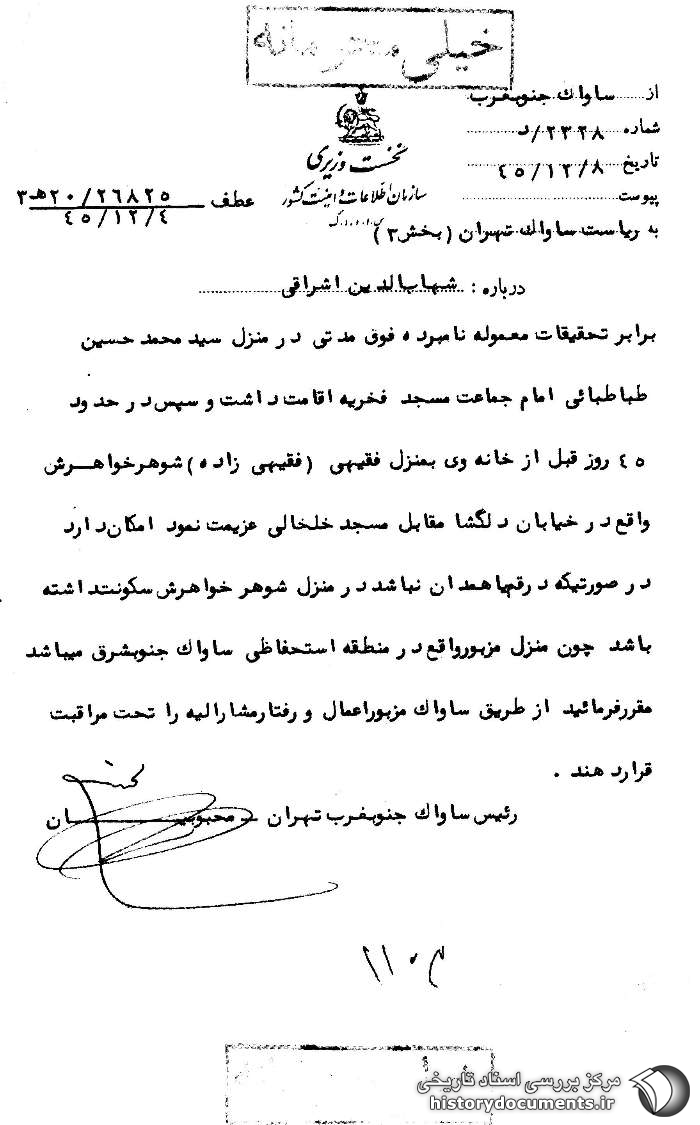 خیلی محرمانه
از ساواك جنوبغرب
شماره ۲۳۲۸/د
تاریخ ۴۵/۱۲/۸
پیوست
نخست وزیری
سازمان اطلاعات و امنیت کشور
س.ا.و.ا.ك
عطف ۲۰/۲۶۸۲۵هـ۳
۴۵/۱۲/۴
به ریاست ساواك تهران (بخش۳)
درباره : شهاب‌الدین اشراقی
برابر تحقیقات معموله نامبرده فوق مدتی در منزل سید محمد حسین
طباطبائی امام جماعت مسجد فخریه اقامت داشت و سپس در حدود
۴۵ روز قبل از خانه وی بمنزل فقیهی (فقیهی زاده) شوهرخواهرش
واقع در خیابان دلگشا مقابل مسجد خلخالی عزیمت نمود امکان دارد
در صورتیکه در قم یا همدان نباشد در منزل شوهر خواهرش سکونت داشته
باشد چون منزل مزبور واقع در منطقه استحفاظی ساواك جنوبشرق میباشد
مقرر فرمائید از طریق ساواك مزبور اعمال و رفتار مشارالیه را تحت مراقبت
قرار دهند .
رئیس ساواك جنوبغرب تهران – محبوبیان
مرکز بررسی اسناد تاریخی
historydocuments.ir